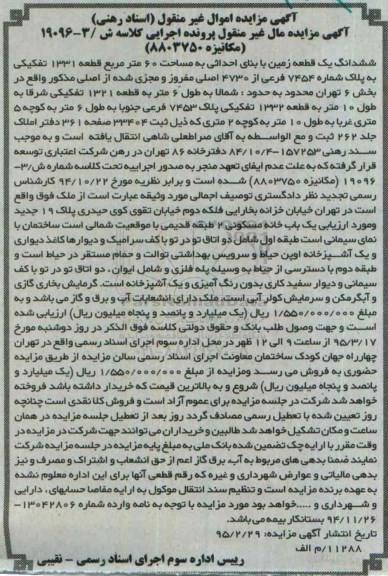 آگهی مزایده اموال غیر منقول (اسناد رهنی)
آگهی مزایده مال غیر منقول پرونده اجرایی کلاسه ش /۳-۱۹۰۹۶
(مکانیزه ۸۸۰۳۷۵۰)
ششدانگ یک قطعه زمین با بنای احداثی به مساحت ۶۰ متر مربع قطعه ۱۳۳۱ تفکیکی
به پلاک شماره ۷۴۵۴ فرعی از ۴۷۳۰ اصلی مفروز و مجزی شده از اصلی مذکور واقع در
بخش ۶ تهران محدود به حدود : شمالا به طول ۶ متر به قطعه ۱۳۲۱ تفکیکی شرقا به
طول ۱۰ متر به قطعه ۱۳۳۲ تفکیکی پلاک ۷۴۵۳ فرعی جنوبا به طول ۶ متر به کوچه ۵
متری غربا به طول ۱۰ متر به کوچه ۲ متری که ذیل ثبت ۳۳۴۰۴ صفحه ۳۶۱ دفتر املاک
جلد ۲۶۲ ثبت و مع الواسطه به آقای صراطعلی شاهی انتقال یافته است و به موجب
سند رهنی ۱۵۷۲۵۳-۸۴/۱۰/۴ دفترخانه ۸۶ تهران در رهن شرکت اعتباری توسعه
قرار گرفته که به علت عدم ایفای تعهد منجر به صدور اجراییه تحت کلاسه شماره ش/۳-
۱۹۰۹۶ (مکانیزه ۸۸۰۳۷۵۰) شده است و برابر نظریه مورخ ۹۴/۱۰/۲۲ کارشناس
رسمی تجدید نظر دادگستری توصیف اجمالی مورد وثیقه عبارت است از ملک فوق واقع
است در تهران خیابان خزانه بخارایی فلکه دوم خیابان تقوی کوی حیدری پلاک ۱۹ جدید
ومورد ارزیابی یک باب خانه مسکونی ۲ طبقه قدیمی با موقعیت شمالی است ساختمان با
نمای سیمانی است طبقه اول شامل دو اتاق تو در تو با کف سرامیک و دیوارها کاغذ دیواری
و یک آشپزخانه اوپن حیاط و سرویس بهداشتی توالت و حمام مستقر در حیاط است و
طبقه دوم با دسترسی از حیاط به وسیله پله فلزی و شامل ایوان ، دو اتاق تو در تو با کف
سیمانی و دیوار سفید کاری بدون رنگ آمیزی و یک آشپزخانه است. گرمایش بخاری گازی
و آبگرمکن و سرمایش کولر آبی است. ملک دارای انشعابات آب و برق و گاز می باشد و به
مبلغ ۱/۵۵۰/۰۰۰/۰۰۰ ریال (یک میلیارد و پانصد و پنجاه میلیون ریال) ارزیابی شده
است و جهت وصول طلب بانک و حقوق دولتی کلاسه فوق الذکر در روز دوشنبه مورخ
۹۵/۳/۱۷ از ساعت ۹ الی ۱۲ ظهر در محل اداره سوم اجرای اسناد رسمی واقع در تهران
چهارراه جهان کودک ساختمان معاونت اجرای اسناد رسمی سالن مزایده از طریق مزایده
حضوری به فروش می رسد ومزایده از مبلغ ۱/۵۵۰/۰۰۰/۰۰۰ ریال (یک میلیارد و
پانصد و پنجاه میلیون ریال) شروع و به بالاترین قیمت که خریدار داشته باشد فروخته
خواهد شد شرکت در جلسه مزایده برای عموم آزاد است و فروش کلا نقدی است چنانچه
روز تعیین شده با تعطیل رسمی مصادف گردد روز بعد از تعطیل جلسه مزایده در همان
ساعت و مکان تشکیل خواهد شد طالبین و خریداران می توانند جهت شرکت در مزایده در
وقت مقرر با ارایه چک تضمین شده بانک ملی به مبلغ پایه مزایده در جلسه مزایده شرکت
نمایند ضمنا بدهی های مربوط به آب، برق گاز اعم از حق انشعاب و اشتراک و مصرف و نیز
بدهی مالیاتی و عوارض شهرداری و غیره که رقم قطعی آنها برای این اداره معلوم نشده
به عهده برنده مزایده است و تنظیم سند انتقال موکول به ارایه مفاصا حسابهای، دارایی
و شهرداری و .....خواهد بود مورد مزایده با توجه به نامه وارده شماره ۱۳۰۴۲۸۰۶-
۹۴/۱۱/۲۶ بستانکار بیمه می باشد.
تاریخ انتشار آگهی مزایده: ۹۵/۲/۲۹
۱۱۲۸۸/م الف
رییس اداره سوم اجرای اسناد رسمی - نقیبی